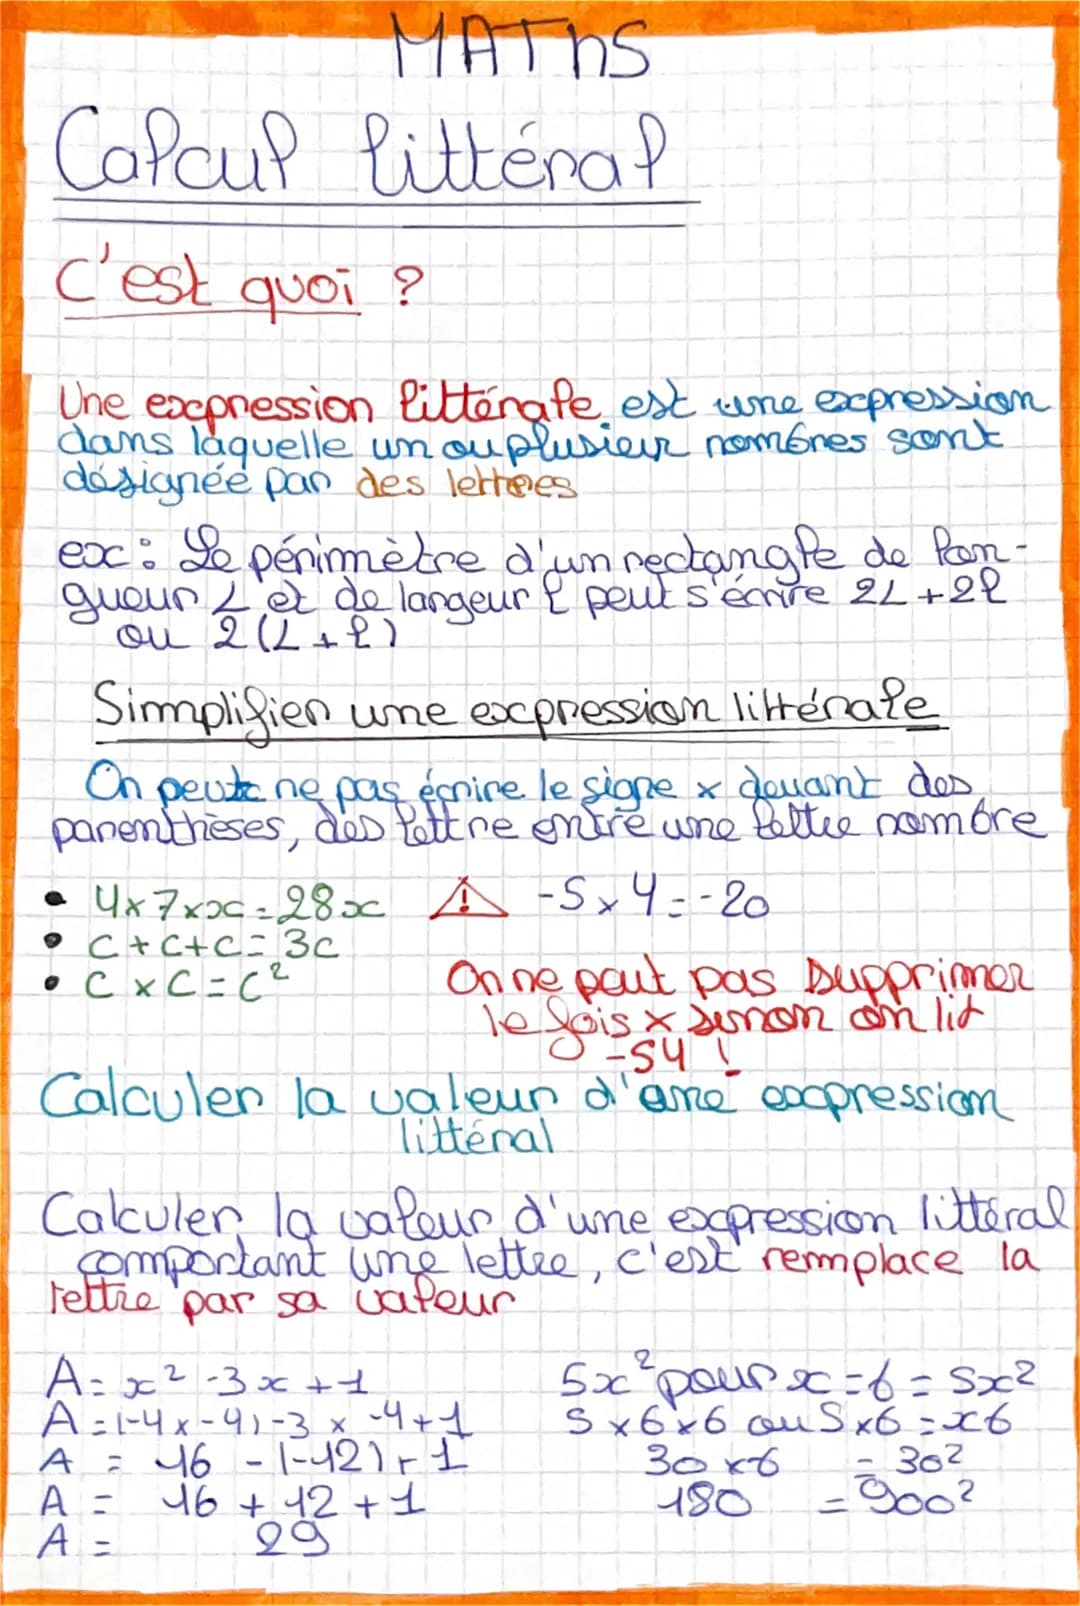 MATHS
Calcul littéral
C'est quoi ?
Une expression littérale est une expression
dans laquelle un ou plusieur nombres sont
désignée par des lettres
ex: Le périmètre d'un rectangle de lon-
gueur L et de largeur l peut s'écrire 2L + 2l
ou 2(L + l)
Simplifier une expression littérale
On peut ne pas écrire le signe x devant des
parenthèses, des lettre entre une lettre nombre
• 4x7xx=28x ⚠ -5x4=-20
• C+C+C=3C
• C x C = C²
On ne peut pas supprimer
le fois x sinon on lit
-54 !
Calculer la valeur d'une expression
littéral
Calculer la valeur d'une expression littéral
comportant une lettre, c'est remplace la
lettre par sa valeur
A = x² - 3x + 1
A = (-4x-4)-3 x -4+1
A = 16 - (-12) + 1
A = 16 + 12 + 1
A = 29
5x² pour x = 6 = 5x²
5x6x6 ou 5x6 = x6
30 x6 = 30²
180 = 900²